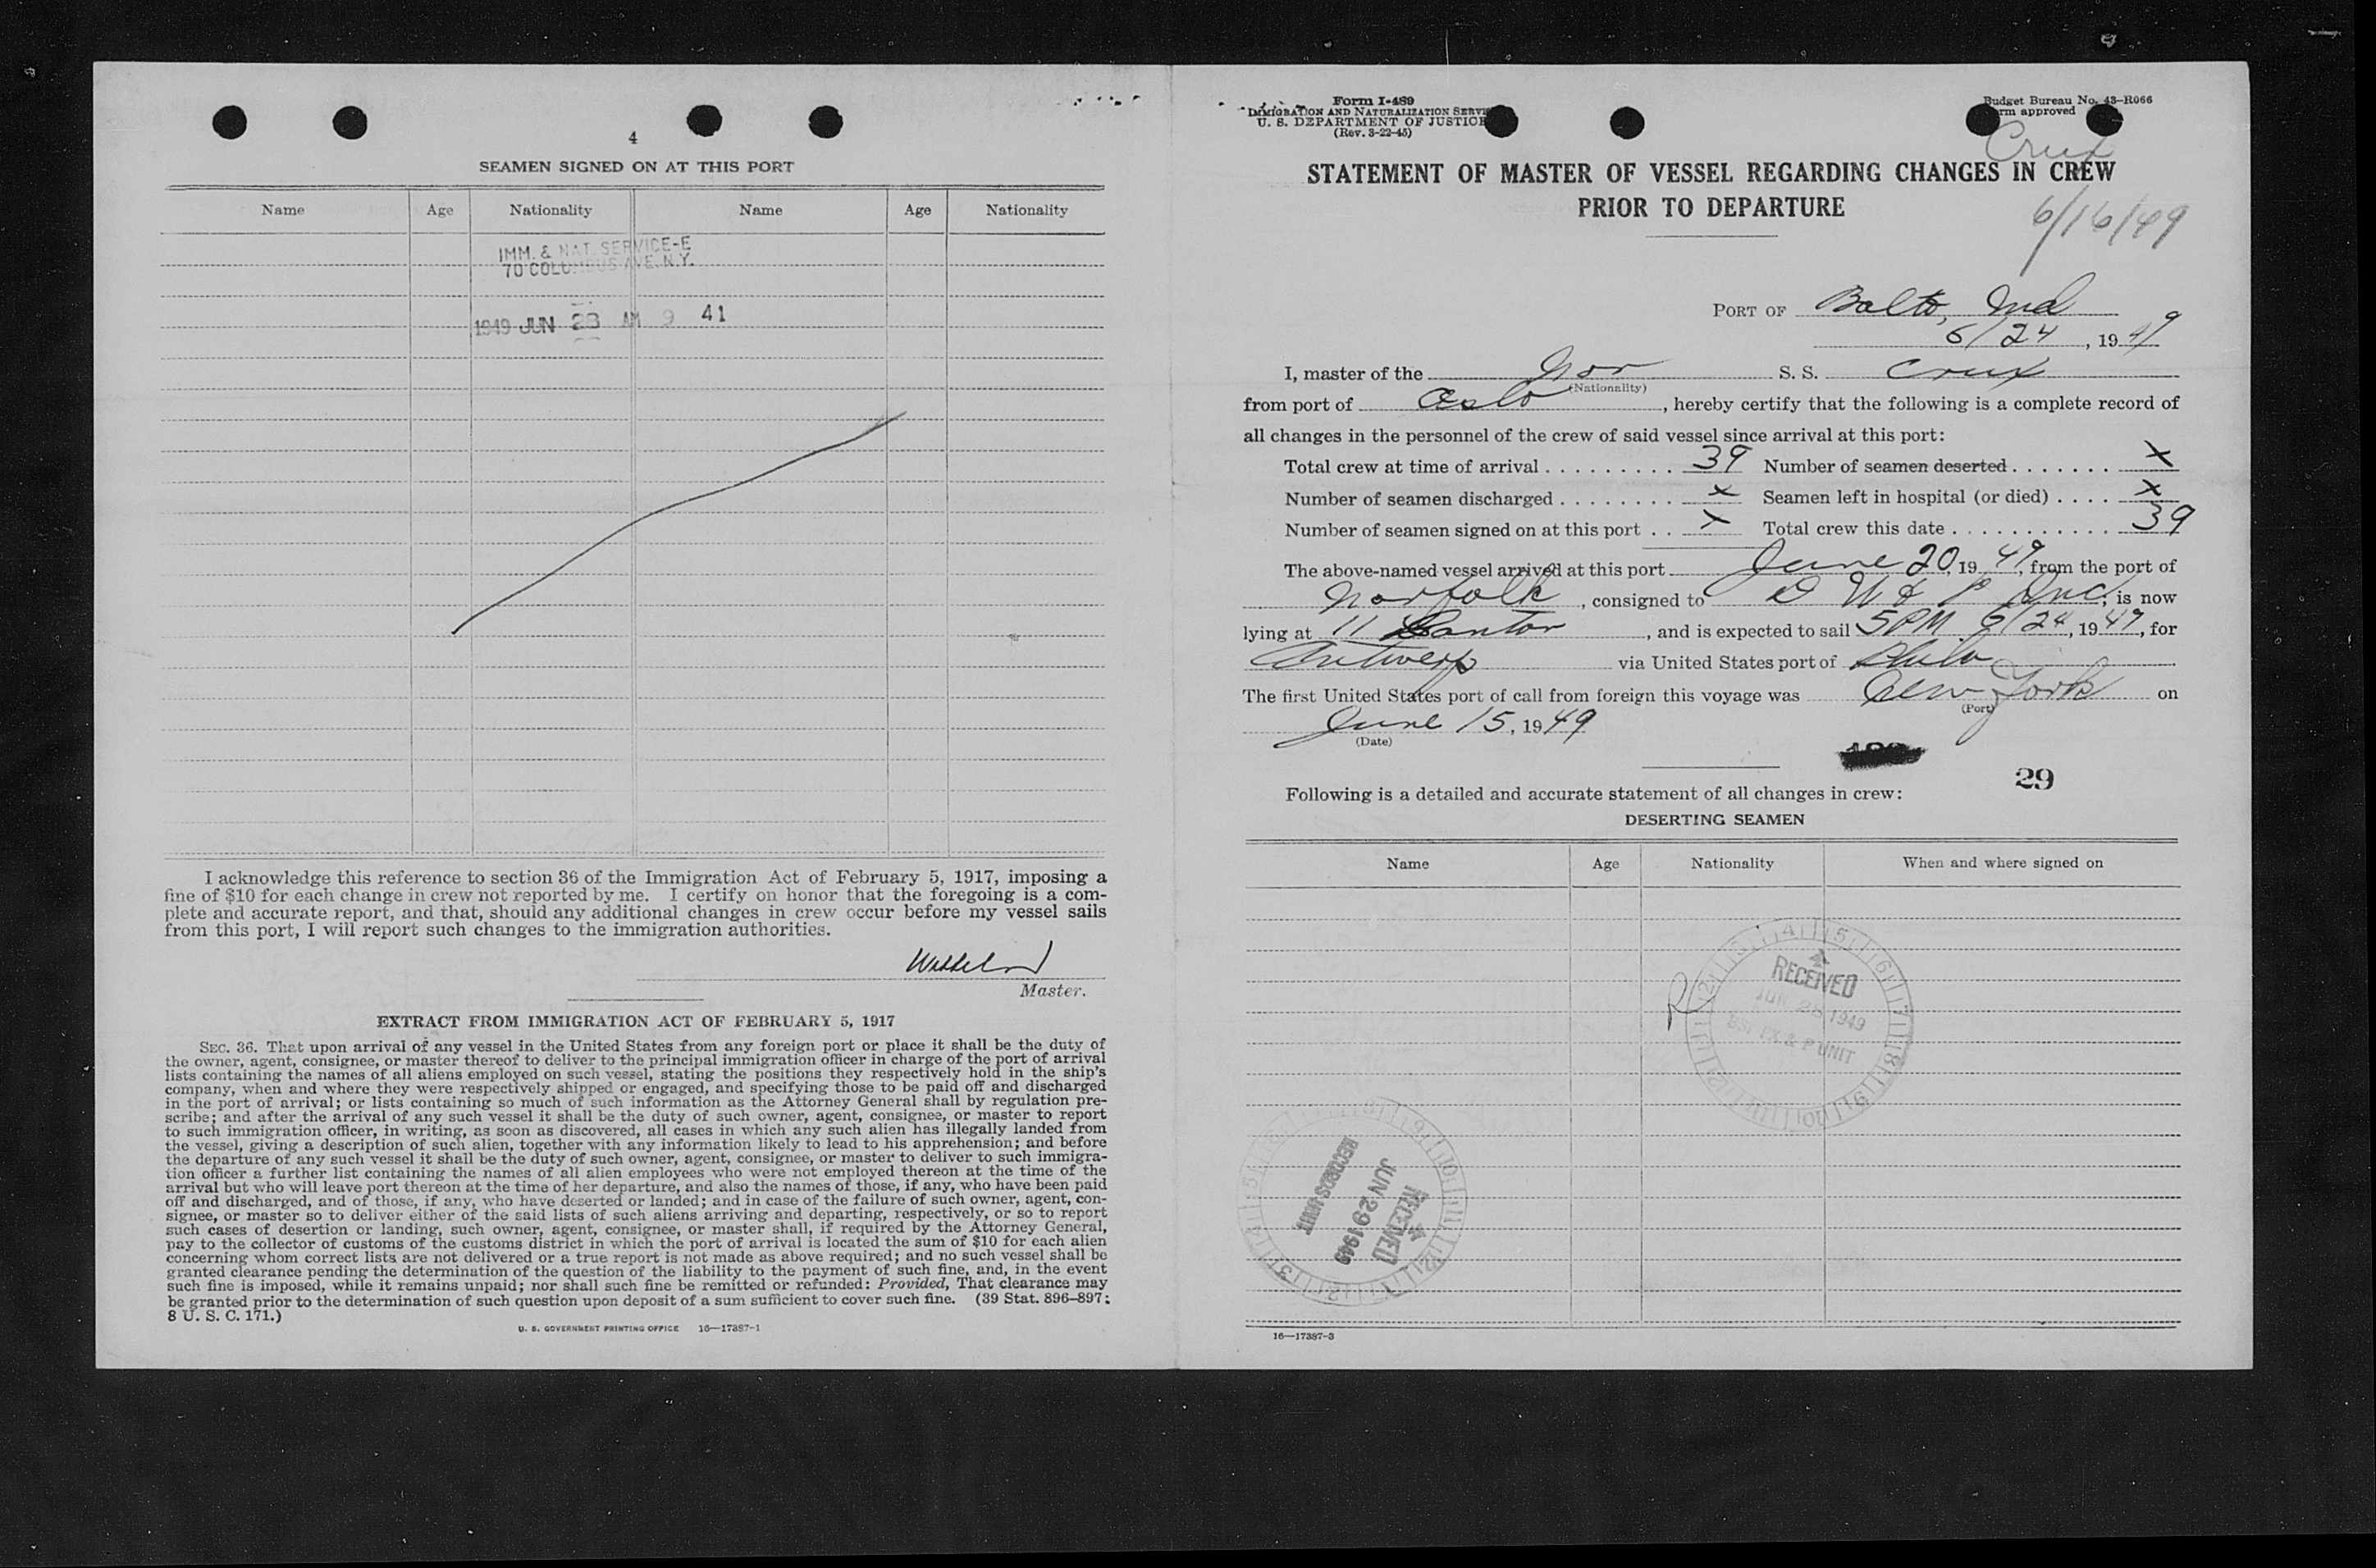 4
SEAMEN SIGNED ON AT THIS PORT
Name Age Nationality Name Age Nationality
IMM. & NAT. SERVICE-E
70 COLUMBUS AVE. N.Y.
1949 JUN 28 AM 9 41
I acknowledge this reference to section 36 of the Immigration Act of February 5, 1917, imposing a
fine of $10 for each change in crew not reported by me. I certify on honor that the foregoing is a com-
plete and accurate report, and that, should any additional changes in crew occur before my vessel sails
from this port, I will report such changes to the immigration authorities.
Master.
EXTRACT FROM IMMIGRATION ACT OF FEBRUARY 5, 1917
SEC. 36. That upon arrival of any vessel in the United States from any foreign port or place it shall be the duty of
the owner, agent, consignee, or master thereof to deliver to the principal immigration officer in charge of the port of arrival
lists containing the names of all aliens employed on such vessel, stating the positions they respectively hold in the ship's
company, when and where they were respectively shipped or engaged, and specifying those to be paid off and discharged
in the port of arrival; or lists containing so much of such information as the Attorney General shall by regulation pre-
scribe; and after the arrival of any such vessel it shall be the duty of such owner, agent, consignee, or master to report
to such immigration officer, in writing, as soon as discovered, all cases in which any such alien has illegally landed from
the vessel, giving a description of such alien, together with any information likely to lead to his apprehension; and before
the departure of any such vessel it shall be the duty of such owner, agent, consignee, or master to deliver to such immigra-
tion officer a further list containing the names of all alien employees who were not employed thereon at the time of the
arrival but who will leave port thereon at the time of her departure, and also the names of those, if any, who have been paid
off and discharged, and of those, if any, who have deserted or landed; and in case of the failure of such owner, agent, con-
signee, or master so to deliver either of the said lists of such aliens arriving and departing, respectively, or so to report
such cases of desertion or landing, such owner, agent, consignee, or master shall, if required by the Attorney General,
pay to the collector of customs of the customs district in which the port of arrival is located the sum of $10 for each alien
concerning whom correct lists are not delivered or a true report is not made as above required; and no such vessel shall be
granted clearance pending the determination of the question of the liability to the payment of such fine, and, in the event
such fine is imposed, while it remains unpaid; nor shall such fine be remitted or refunded: Provided, That clearance may
be granted prior to the determination of such question upon deposit of a sum sufficient to cover such fine. (39 Stat. 896-897;
8 U. S. C. 171.)
U. S. GOVERNMENT PRINTING OFFICE 16—17387-1
Form I-489
IMMIGRATION AND NATURALIZATION SERVICE
U. S. DEPARTMENT OF JUSTICE
(Rev. 3-22-45)
Budget Bureau No. 43-R066
Form approved
Crux
STATEMENT OF MASTER OF VESSEL REGARDING CHANGES IN CREW
PRIOR TO DEPARTURE
6/16/49
PORT OF Balto, Md
6/24, 1949
I, master of the Nor S. S. Crux
(Nationality)
from port of Oslo, hereby certify that the following is a complete record of
all changes in the personnel of the crew of said vessel since arrival at this port:
Total crew at time of arrival . . . . . . . . . 39 Number of seamen deserted . . . . . . . X
Number of seamen discharged . . . . . . . . X Seamen left in hospital (or died) . . . . X
Number of seamen signed on at this port . . X Total crew this date . . . . . . . . . . . . 39
The above-named vessel arrived at this port June 20, 1949, from the port of
Norfolk, consigned to Inc, is now
lying at 11 Canton, and is expected to sail 5PM 6/24, 1949, for
Antwerp via United States port of Phila
The first United States port of call from foreign this voyage was New York on
(Port)
June 15, 1949
(Date)
29
Following is a detailed and accurate statement of all changes in crew:
DESERTING SEAMEN
Name Age Nationality When and where signed on
R
RECEIVED
JUN 28 1949
RECEIVED
JUN 29 1949
RECORDS UNIT
16—17387-3